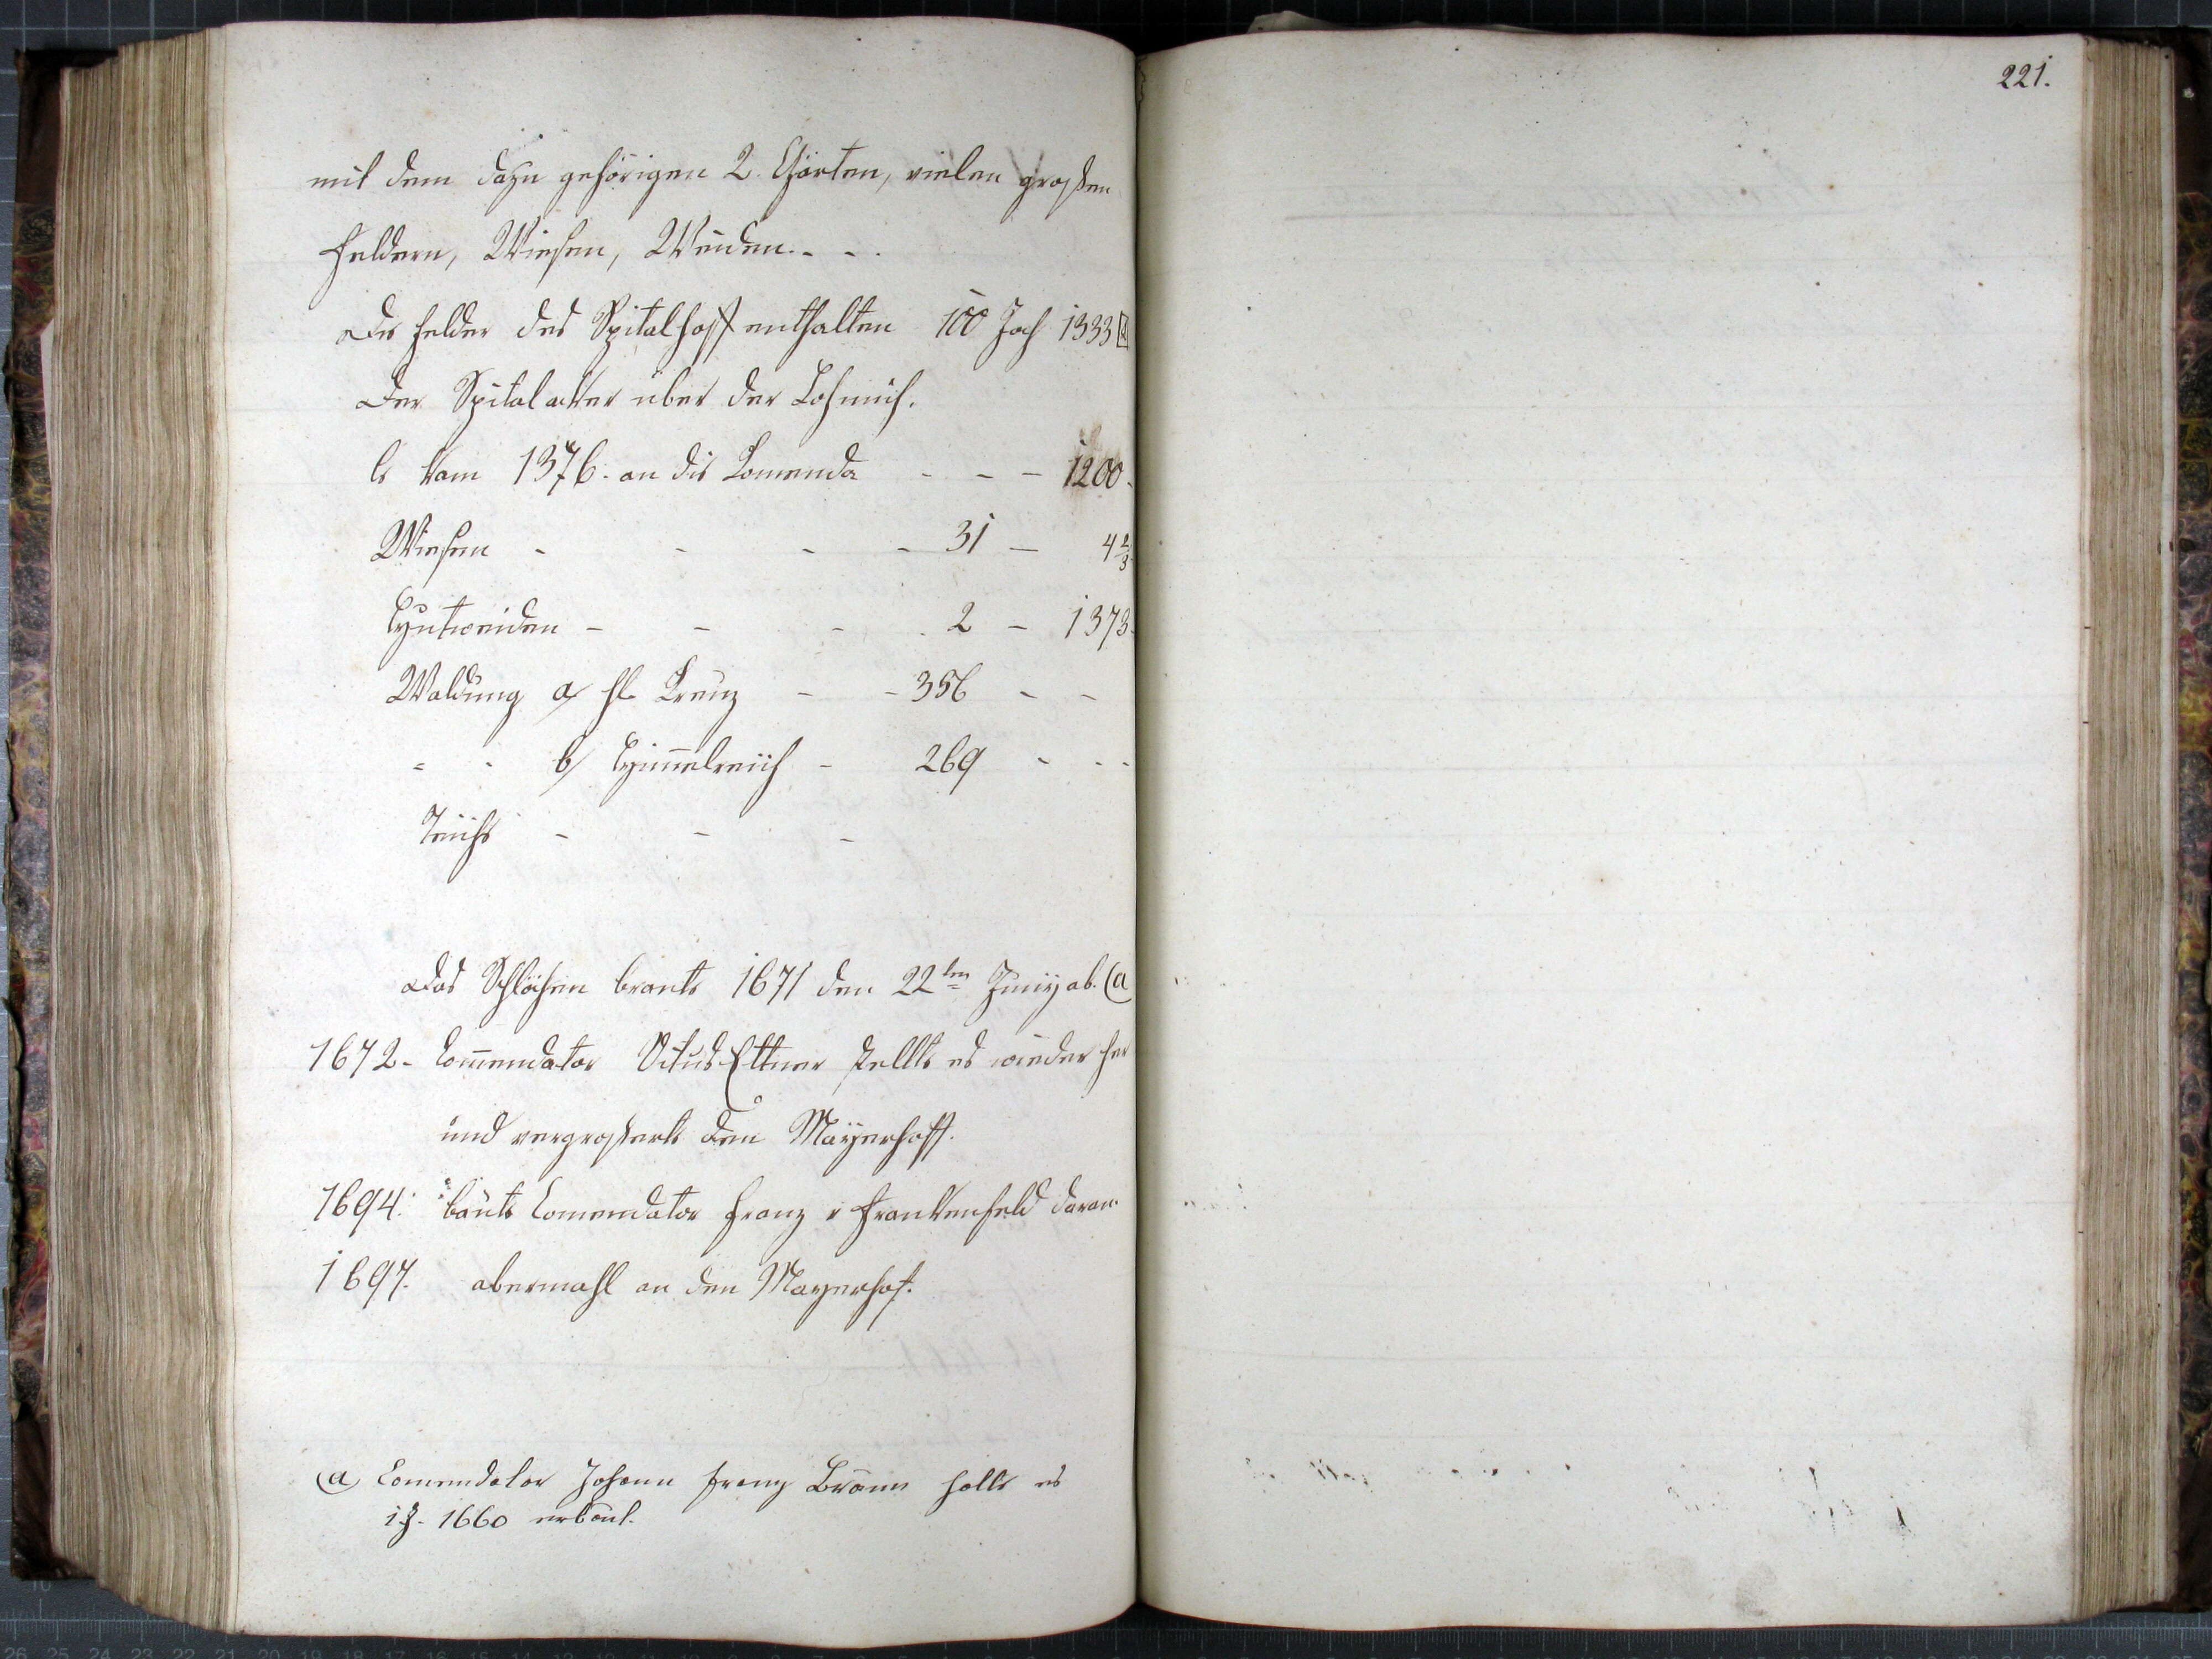 mit dem dazu gehörigen 2. Gärten, vielen großen
Feldern, Wiesen, Weiden. - -
Die Felder des Spitalhoff enthalten 100 Joch 1333
Der Spitalacker über der
Er kam 1376. an die Comenda - - - 1200.
Wiesen - - - - 31 - 4 2/3
Hutweiden - - - 2 - 1373.
Waldung a/ hl Kreuz - - 356 - -
" " b/ Himmelreich - 269 - - -
Teiche - - -
Das Schlößchen brante 1671 den 22ten Juny ab. (a
1672 - Commendator Vitus Ettner stellte es wieder her
und vergroßerte den Mayerhoff.
1694: baute Comendator Franz v Frankenfeld daran
1697. abermahl an den Mayerhof.
(a Comendator Johann Franz Braun hatte es
i J. 1660 erbaut.
221.